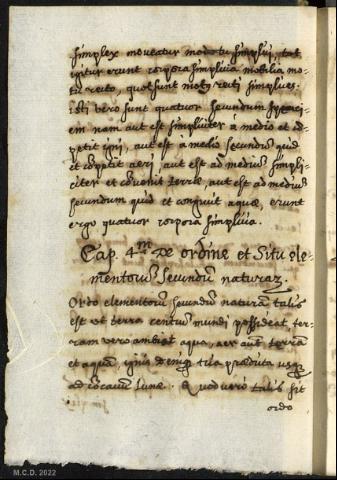 simplex moveatur modo tu simplici, tot
igitur erunt corpora simplicia mobilia mo-
tu recto, quot sunt motus recti simplices.
isti vero sunt quatuor secundum speciem
nam aut est simpliciter à medio et com-
petit igni, aut est à medio secundum quid
et competit aeri aut est ad medium simpli-
citer et convenit terræ, aut est ad medium
secundum quid et congruit aquæ, erunt
ergo quatuor corpora simplicia.
Cap. 4m de ordine et Situ ele-
mentorum secundum naturaz.
Ordo elementorum secundum naturam talis
est ut terra centrum mundi possideat, ter-
ram vero ambiat aqua, aer aut terra
et aquam, ignis denique tria prædicta usque
ad concavum lunæ. Quod vero talis sit
ordo
M.C.D. 2022